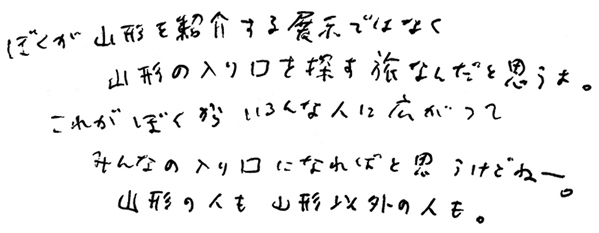 ぼくが山形を紹介する展示ではなく
山形の入り口を探す旅なんだと思うよ。
これがぼくからいろんな人に広がって
みんなの入り口になればと思うけどねー。
山形の人も山形以外の人も。